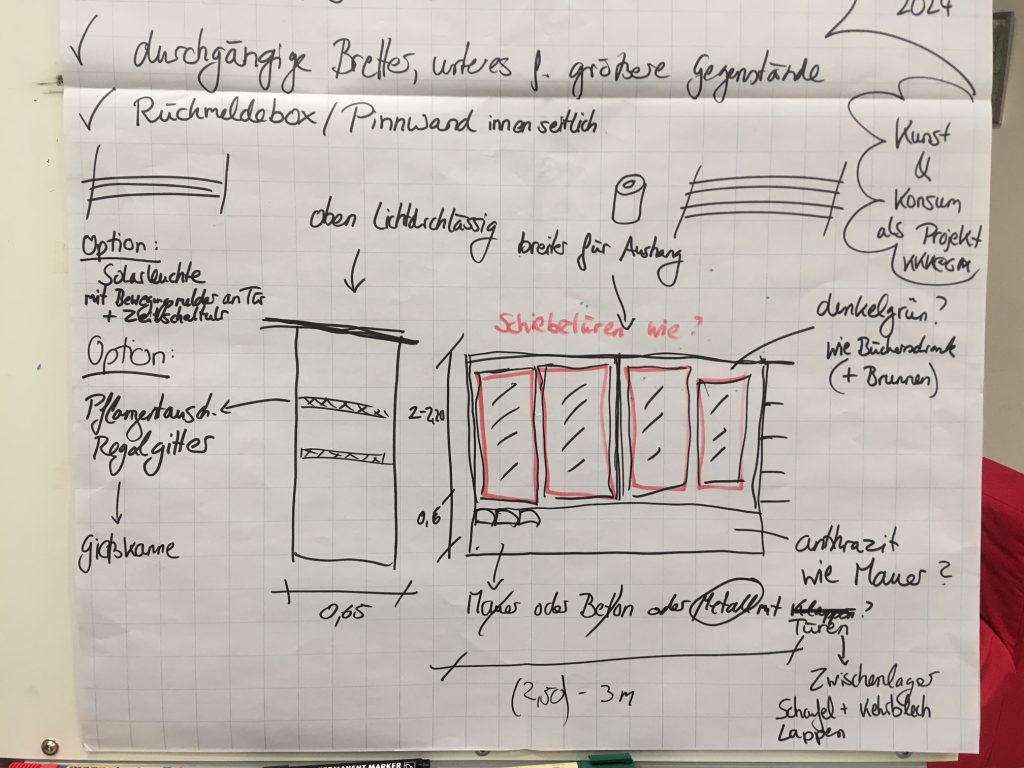 2024
✓ durchgängige Bretter, unteres f. größere Gegenstände
✓ Rückmeldebox / Pinnwand innen seitlich
Kunst
&
Konsum
als Projekt
oben Lichtdurchlässig
breites für Aushang
Option:
Solarleuchte
mit Bewegungsmelder an Tür
+ Zeitschaltuhr
Option:
Pflanzentausch-
Regalgitter
Gießkanne
0,65
Schiebetüren wie?
2-2,20
0,6
dunkelgrün?
wie Bücherschrank
(+ Brunnen)
anthrazit
wie Mauer?
Mauer oder Beton oder Metall mit Klappen?
Türen
Zwischenlager
Schaufel + Kehrblech
Lappen
(2,50) - 3 m
PERMANENT MARKER